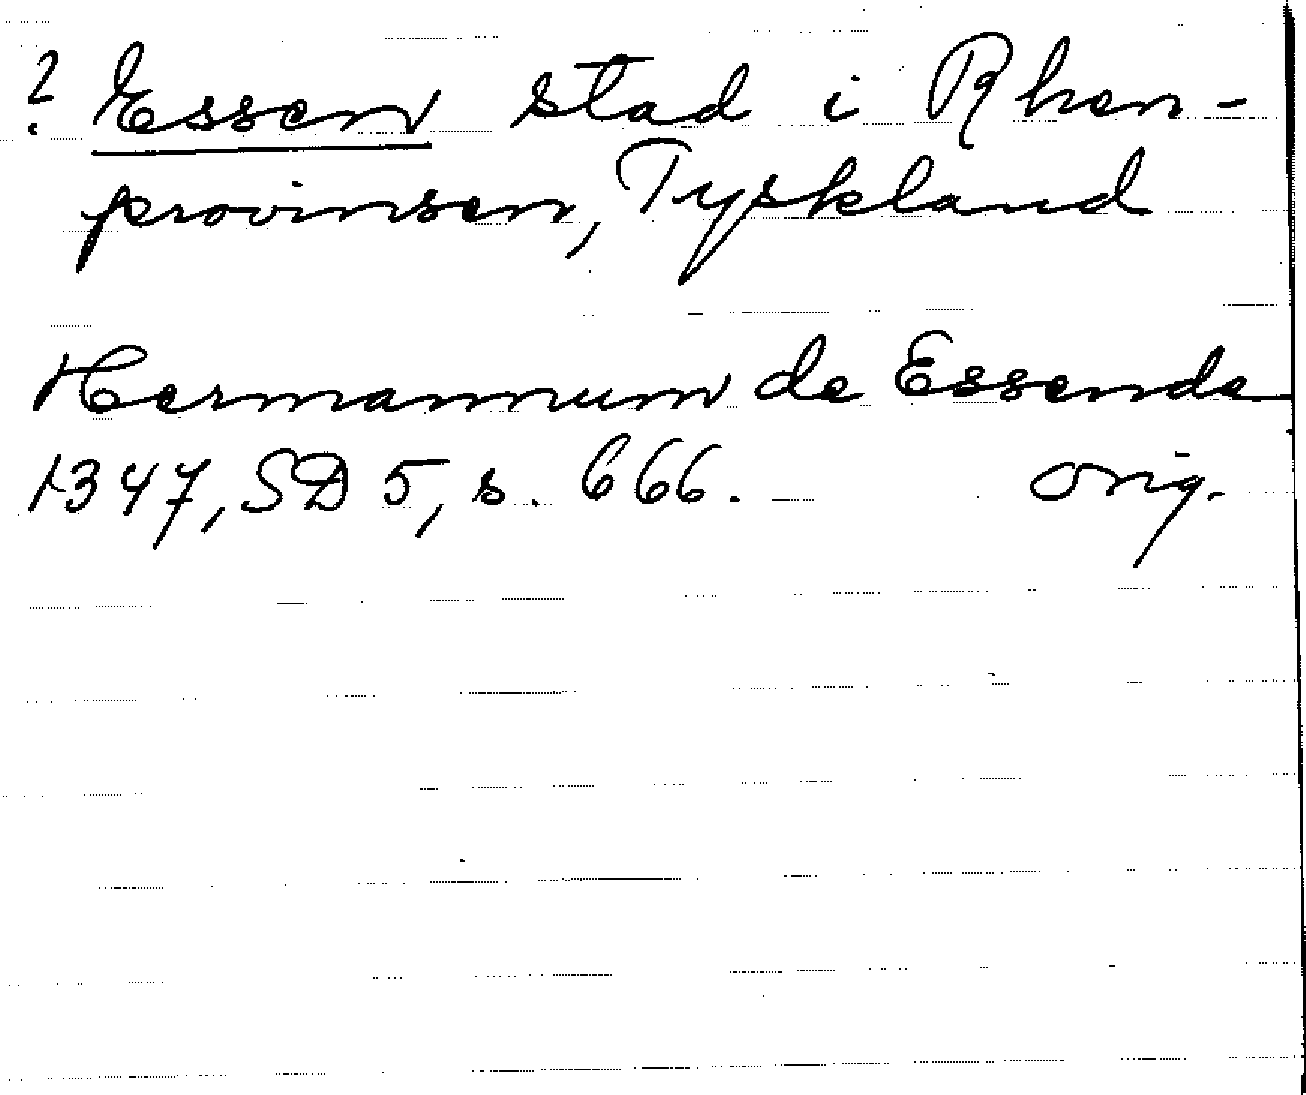 ? Essen stad i Rhen-
provinsen, Tyskland
Hermannum de Essende
1347, SD 5, s. 666. orig.